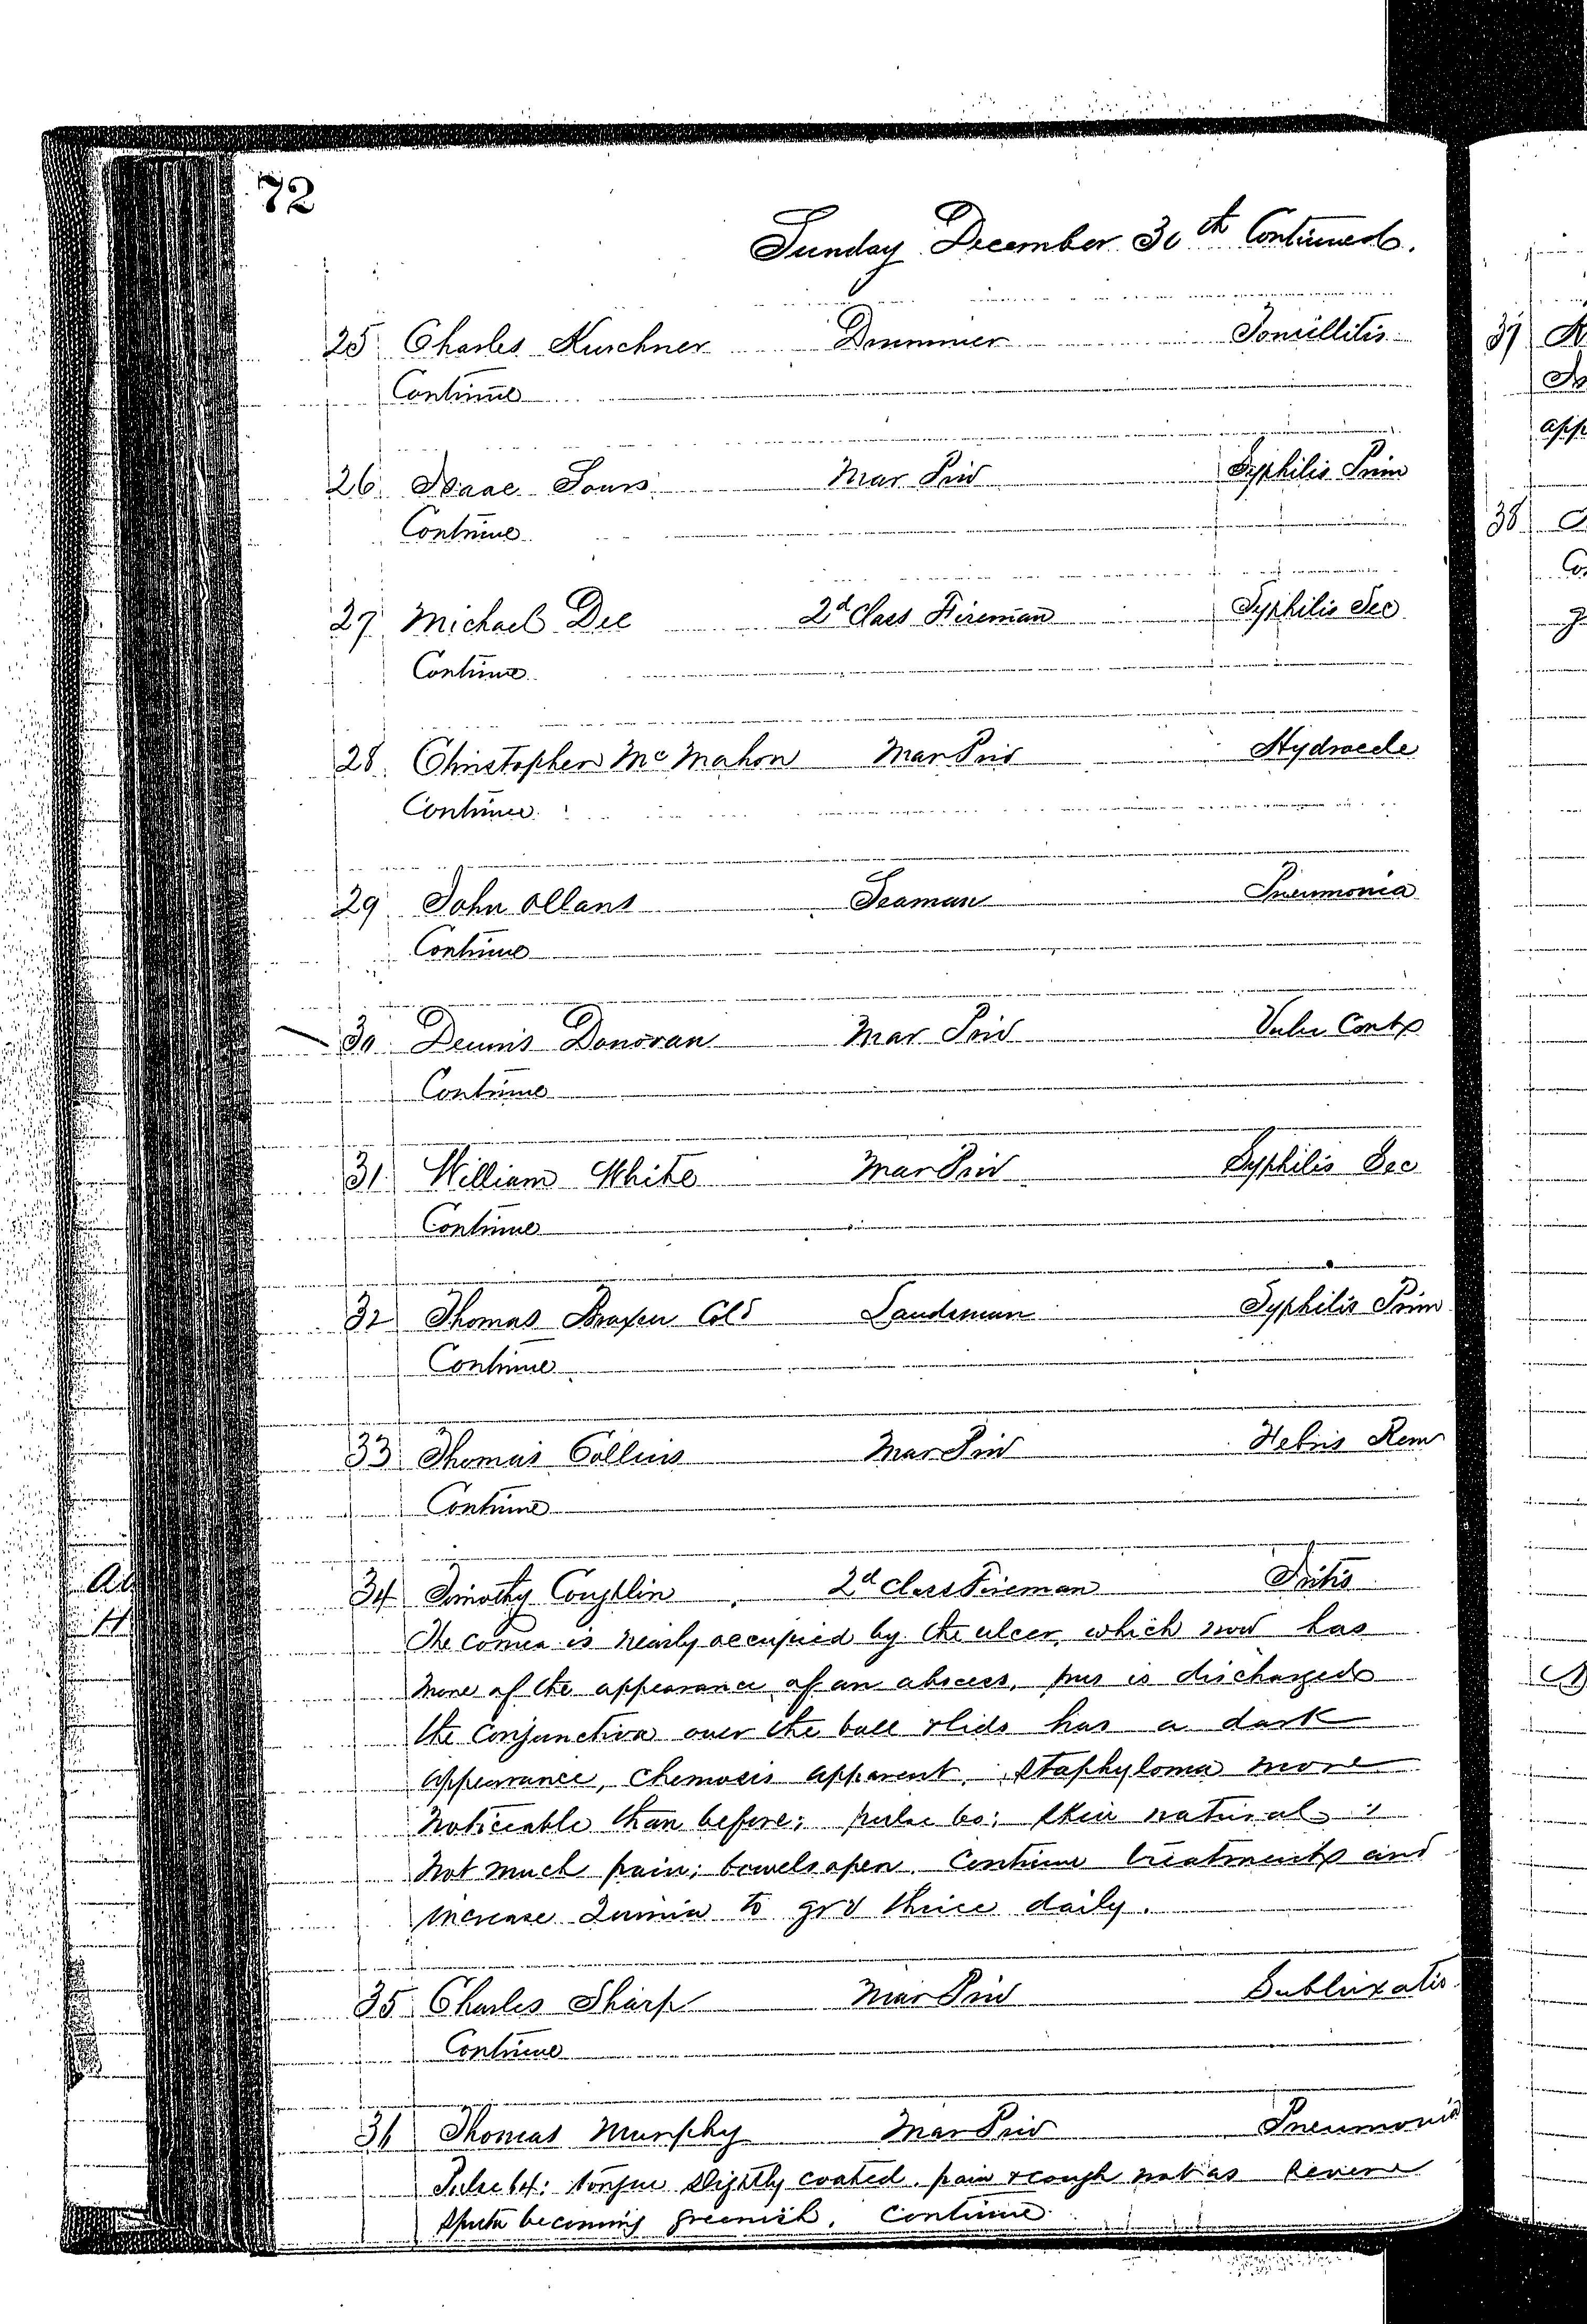 72
Sunday December 30th Continued.
25 Charles Kurchner Drummer Tonsillitis
Continue
26 Isaac Sours Mar Priv Syphilis Prim
Continue
27 Michael Dee 2d Class Fireman Syphilis Sec
Continue
28 Christopher McMahon Mar Priv Hydrocele
Continue
29 John Ollans Seaman Pneumonia
Continue
30 Dennis Donovan Mar Priv Vuln Cont
Continue
31 William White Mar Priv Syphilis Sec
Continue
32 Thomas Cold Landsman Syphilis Prim
Continue
33 Thomas Collins Mar Priv Febris Rem
Continue
34 Timothy Coughlin 2d Class Fireman Iritis
The cornea is nearly occupied by the ulcer, which now has
more of the appearance of an abscess, pus is discharged
the conjunctiva over the ball & lids has a dark
appearance, chemosis apparent, staphyloma more
noticeable than before; pulse 60; skin natural;
not much pain; bowels open. Continue treatment and
increase Quinia to grv thrice daily.
35 Charles Sharp Mar Priv Subluxatio
Continue
36 Thomas Murphy Mar Priv Pneumonia
Pulse 64; tongue slightly coated. pain & cough not as severe
Sputa becoming greenish. Continue
37
38